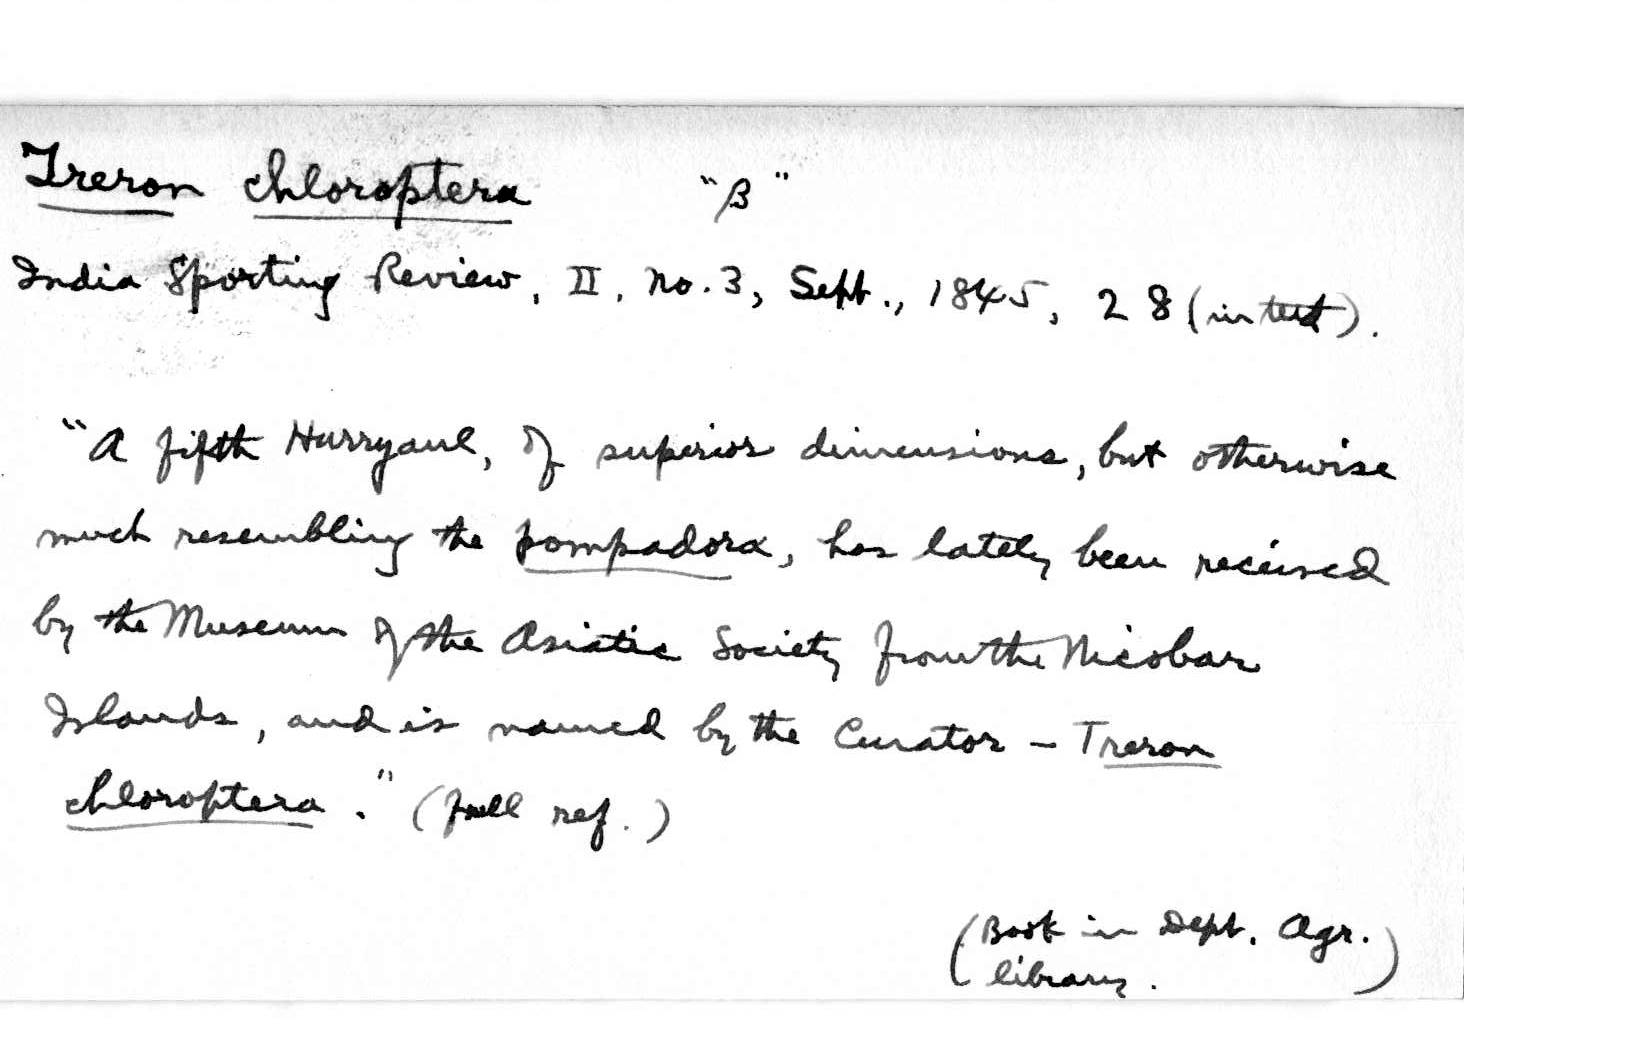 Treron chloroptera "β"
India Sporting Review, II, no. 3, Sept., 1845, 28 (in text).
"A fifth Hurryaul, of superior dimensions, but otherwise
much resembling the pompadora, has lately been received
by the Museum of the Asiatic Society from the Nicobar
Islands, and is named by the Curator – Treron
chloroptera." (full ref.)
(Book in Dept. Agr.
library.)